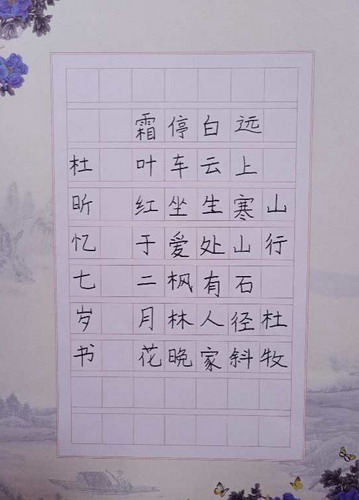 山行 杜牧
远上寒山石径斜
白云生处有人家
停车坐爱枫林晚
霜叶红于二月花
杜昕忆七岁书